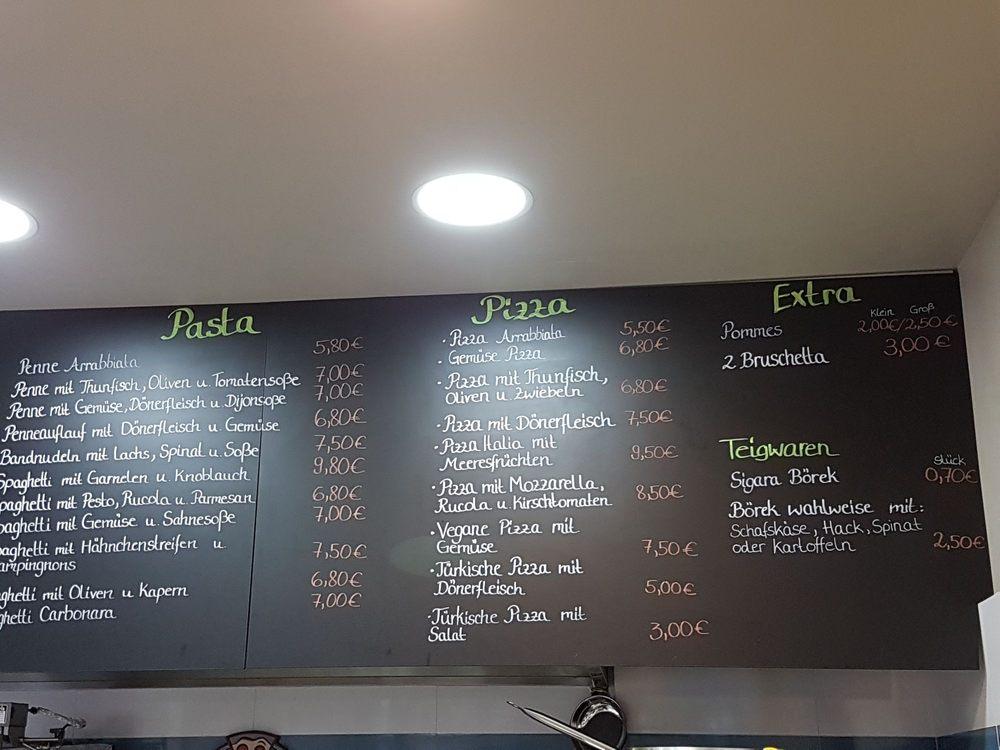 Pasta
Penne Arrabbiata 5,80€
Penne mit Thunfisch, Oliven u. Tomatensoße 7,00€
Penne mit Gemüse, Dönerfleisch u. Dijonsoße 7,00€
Penneauflauf mit Dönerfleisch u. Gemüse 6,80€
Bandnudeln mit Lachs, Spinat u. Soße 7,50€
Spaghetti mit Garnelen u. Knoblauch 9,80€
paghetti mit Pesto, Rucola u. Parmesan 6,80€
paghetti mit Gemüse u. Sahnesoße 7,00€
aghetti mit Hähnchenstreifen u.
ampingnons 7,50€
ghetti mit Oliven u. Kapern 6,80€
ghetti Carbonara 7,00€
Pizza
· Pizza Arrabbiata 5,50€
· Gemüse Pizza 6,80€
· Pizza mit Thunfisch,
Oliven u. Zwiebeln 6,80€
· Pizza mit Dönerfleisch 7,50€
· Pizza Italia mit
Meeresfrüchten 9,50€
· Pizza mit Mozzarella,
Rucola u. Kirschtomaten 8,50€
· Vegane Pizza mit
Gemüse 7,50€
· Türkische Pizza mit
Dönerfleisch 5,00€
· Türkische Pizza mit
Salat 3,00€
Extra
Klein Groß
Pommes 2,00€/2,50€
2 Bruschetta 3,00€
Teigwaren
Stück
Sigara Börek 0,70€
Börek wahlweise mit:
Schafskäse, Hack, Spinat
oder Kartoffeln 2,50€